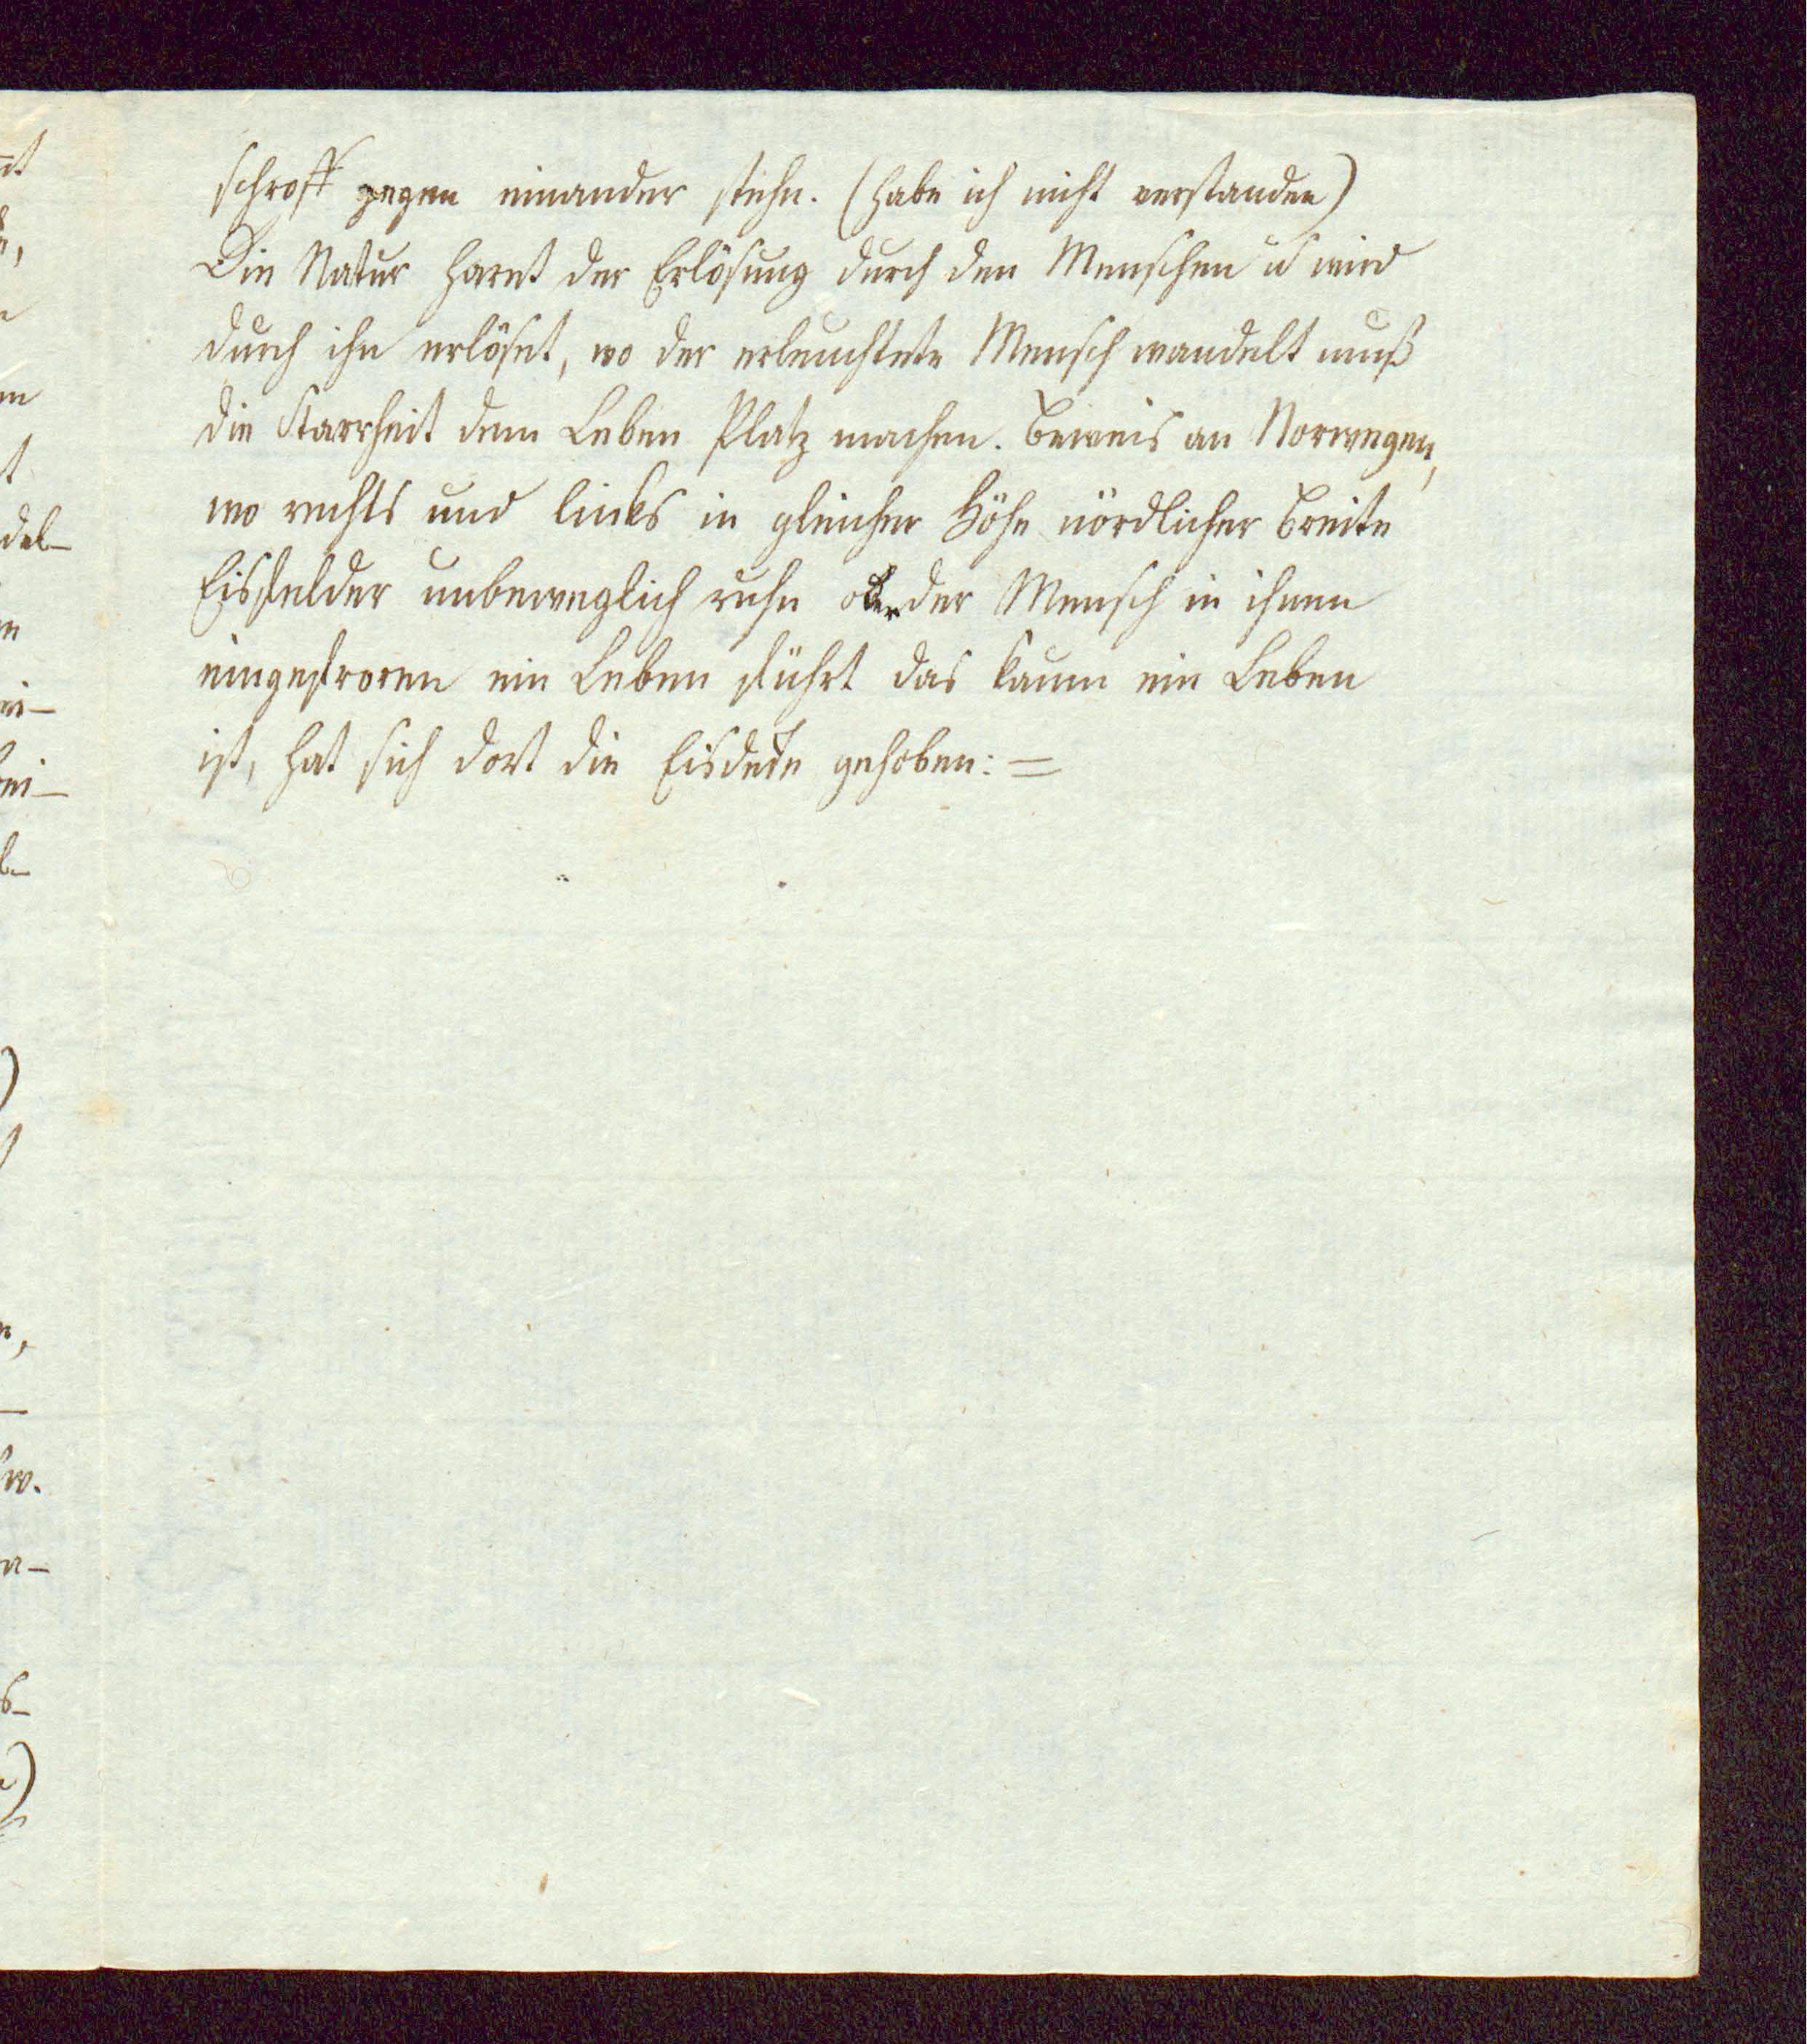 schroff gegen einander stehn. (habe ich nicht verstanden)
Die Natur harret der Erlösung durch den Menschen u wird
durch ihn erlöset, wo der erleuchtete Mensch wandelt muß
die Starrheit dem Leben Platz machen. Beweis an Norwegen,
wo rechts und links in gleicher Höhe nördlicher Breite
Eisfelder unbeweglich ruhn oder der Mensch in ihnen
eingefroren ein Leben führt das kaum ein Leben
ist, hat sich dort die Eisdecke gehoben: =